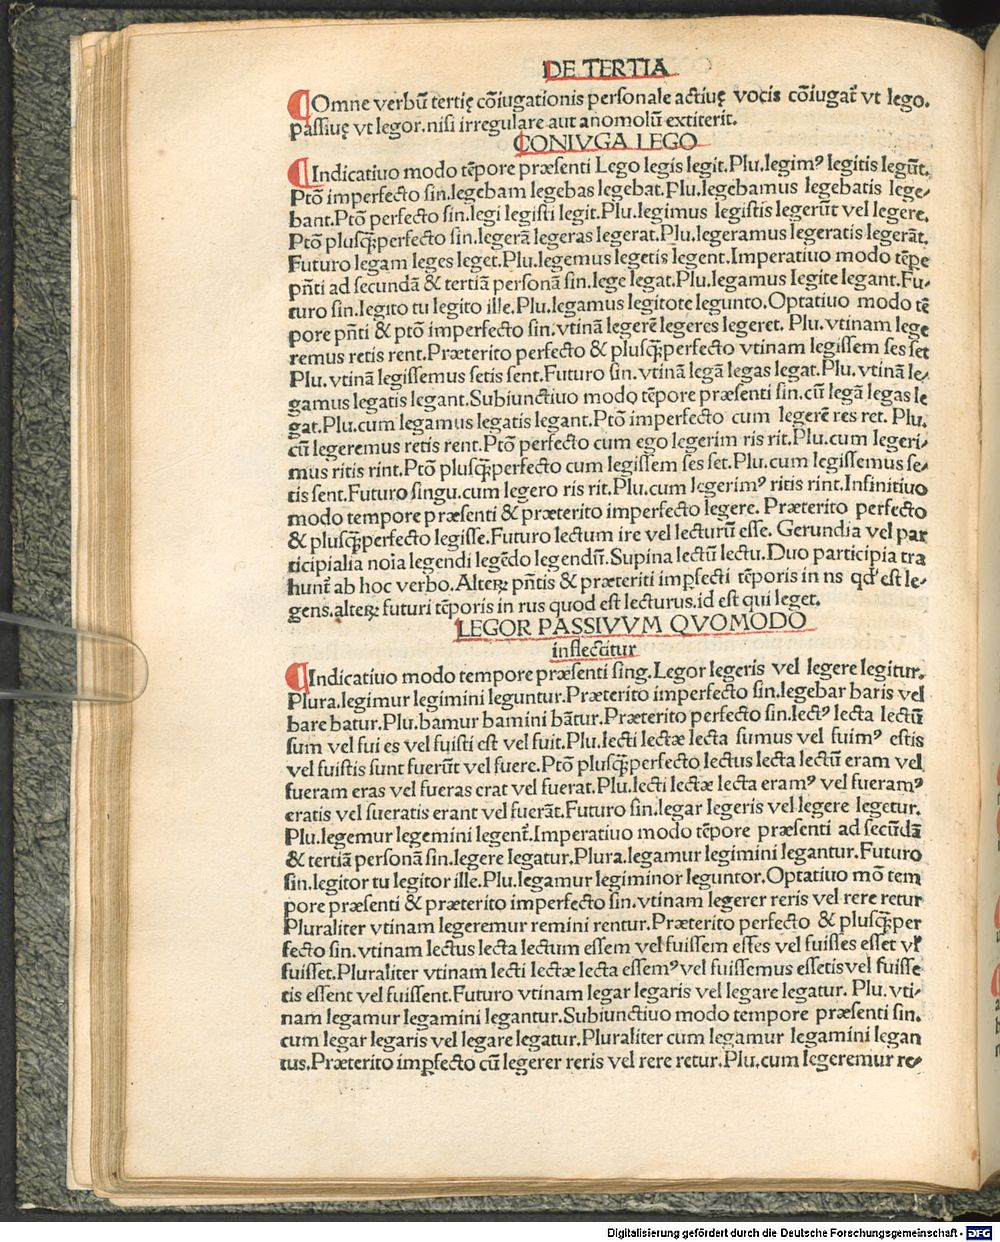 DE TERTIA
¶Omne verbū tertię cōiugationis personale actiuę vocis cōiugat᷑ vt lego.
passiuę vt legor.nisi irregulare aut anomolū extiterit.
CONIVGA LEGO
¶Indicatiuo modo tēpore præsenti Lego legis legit.Plu.legimꝰ legitis legūt.
Ptō imperfecto sin.legebam legebas legebat.Plu.legebamus legebatis lege⸗
bant.Ptō perfecto sin.legi legisti legit.Plu.legimus legistis legerūt vel legere.
Ptō plusq̄ꝑperfecto sin.legerā legeras legerat.Plu.legeramus legeratis legerāt.
Futuro legam leges leget.Plu.legemus legetis legent.Imperatiuo modo tēpe
pñti ad secundā & tertiā personā sin.lege legat.Plu.legamus legite legant.Fu⸗
turo sin.legito tu legito ille.Plu.legamus legitote legunto.Optatiuo modo tē
pore pñti & ptō imperfecto sin.vtinā legerē legeres legeret. Plu.vtinam lege
remus retis rent.Præterito perfecto & plusq̄ꝑperfecto vtinam legissem ses set
Plu.vtinā legissemus setis sent.Futuro sin.vtinā legā legas legat.Plu.vtinā le⸗
gamus legatis legant.Subiunctiuo modo tēpore præsenti sin.cū legā legas le
gat.Plu.cum legamus legatis legant.Ptō imperfecto cum legerē res ret. Plu.
cū legeremus retis rent.Ptō perfecto cum ego legerim ris rit.Plu.cum legeri⸗
mus ritis rint.Ptō plusq̄ꝑperfecto cum legissem ses set.Plu.cum legissemus se⸗
tis sent.Futuro singu.cum legero ris rit.Plu.cum legerimꝰ ritis rint.Infinitiuo
modo tempore præsenti & præterito imperfecto legere. Præterito perfecto
& plusq̄ꝑperfecto legisse.Futuro lectum ire vel lecturū esse. Gerundia vel par
ticipialia noīa legendi legēdo legendū.Supina lectū lectu.Duo participia tra
hunt᷑ ab hoc verbo.Alteꝝ pñtis & præteriti imꝑfecti tēporis in ns qd̕ est le⸗
gens.alteꝝ futuri tēporis in rus quod est lecturus.id est qui leget.
LEGOR PASSIVVM QVOMODO
inflectitur
¶Indicatiuo modo tempore præsenti sing.Legor legeris vel legere legitur.
Plura.legimur legimini leguntur.Præterito imperfecto sin.legebar baris vel
bare batur.Plu.bamur bamini bātur.Præterito perfecto sin.lectꝰ lecta lectū
sum vel fui es vel fuisti est vel fuit.Plu.lecti lectæ lecta sumus vel fuimꝰ estis
vel fuistis sunt fuerūt vel fuere.Ptō plusq̄ꝑperfecto lectus lecta lectū eram vel
fueram eras vel fueras erat vel fuerat.Plu.lecti lectæ lecta eramꝰ vel fueramꝰ
eratis vel fueratis erant vel fuerāt.Futuro sin.legar legeris vel legere legetur.
Plu.legemur legemini legent᷑.Imperatiuo modo tēpore præsenti ad secūdā
& tertiā personā sin.legere legatur.Plura.legamur legimini legantur.Futuro
sin.legitor tu legitor ille.Plu.legamur legiminor leguntor.Optatiuo mō tem
pore præsenti & præterito imperfecto sin.vtinam legerer reris vel rere retur
Pluraliter vtinam legeremur remini rentur.Præterito perfecto & plusq̄ꝑper
fecto sin.vtinam lectus lecta lectum essem vel fuissem esses vel fuisses esset vl̕
fuisset.Pluraliter vtinam lecti lectæ lecta essemꝰ vel fuissemus essetis vel fuisse
tis essent vel fuissent.Futuro vtinam legar legaris vel legare legatur. Plu.vti⸗
nam legamur legamini legantur.Subiunctiuo modo tempore præsenti sin.
cum legar legaris vel legare legatur.Pluraliter cum legamur legamini legan
tus.Præterito imꝑfecto cū legerer reris vel rere retur.Plu.cum legeremur re⸗
Digitalisierung gefördert durch die Deutsche Forschungsgemeinschaft - DFG